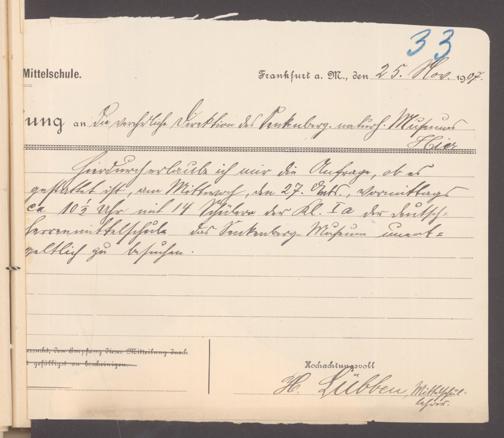 33
Mittelschule.
Frankfurt a. M., den 25. Nov. 1907.
ung an die verehrliche Direktion des Senkenberg. naturh. Museums
Hier
Hierdurch erlaube ich mir die Anfrage, ob es
gestattet ist, am Mittwoch, den 27. vormittags
ca 10½ Uhr mit 14 Schülern der Kl. Ia der deutsch-
herrenmittelschule das Senkenberg-Museum unent=
geltlich zu besuchen.
ersucht, den Empfang dieser Mitteilung durch
gefälligst zu bescheinigen.
Hochachtungsvoll
H. Lübben, Mittelschul-
lehrer.